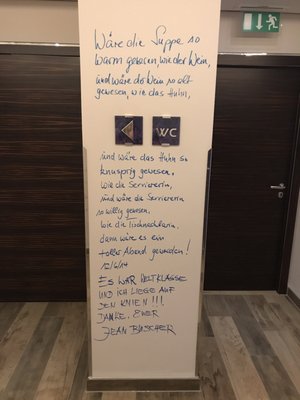 Wäre die Suppe so
warm gewesen, wie der Wein,
und wäre der Wein so alt
gewesen, wie das Huhn,
WC
und wäre das Huhn so
knusprig gewesen,
wie die Serviererin,
und wäre die Serviererin
so willig gewesen,
wie die
dann wäre es ein
toller Abend geworden!
12/6/14
ES WAR WELTKLASSE
UND ICH LIEGE AUF
DEN KNIEN!!!
DANKE. EUER
JEAN